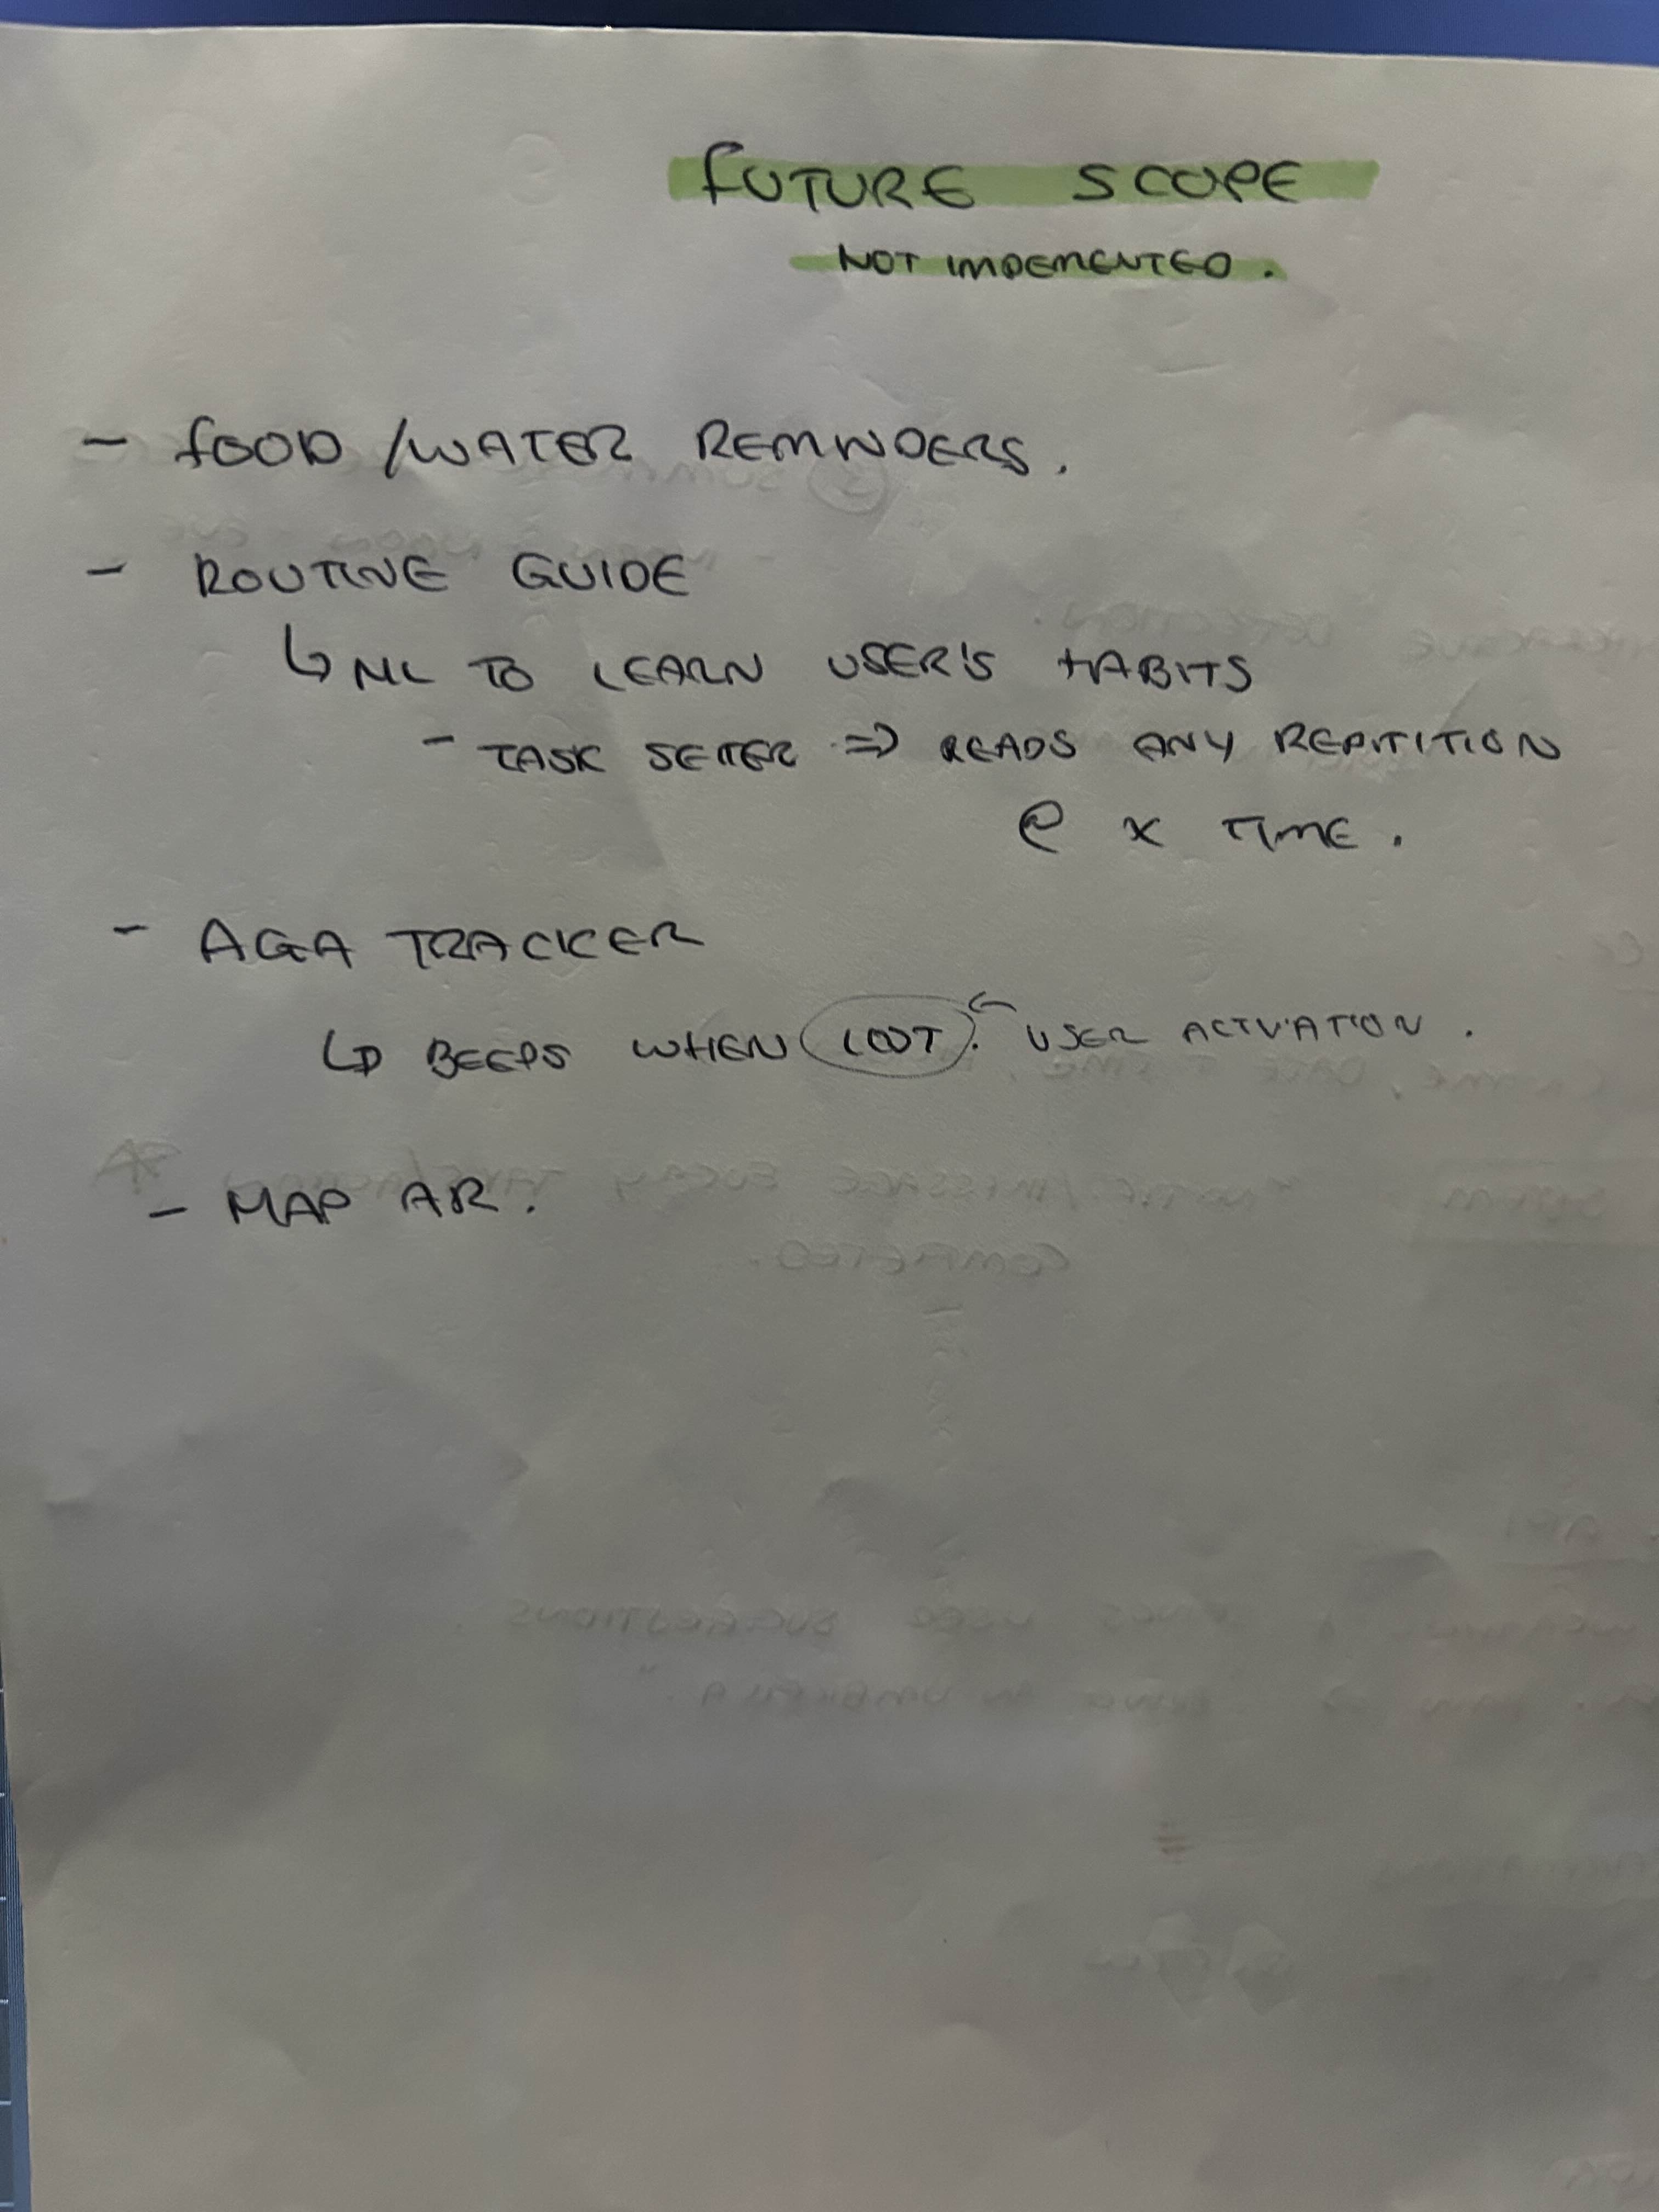 FUTURE SCOPE
NOT IMPEMENTED.
- FOOD/WATER REMINDERS.
- ROUTINE GUIDE
↳ ML TO LEARN USER'S HABITS
- TASK SETTER ⇒ READS ANY REPITITION
@ X TIME.
- AGA TRACKER
↳ BEEPS WHEN LOST. ← USER ACTIVATION.
- MAP AR.